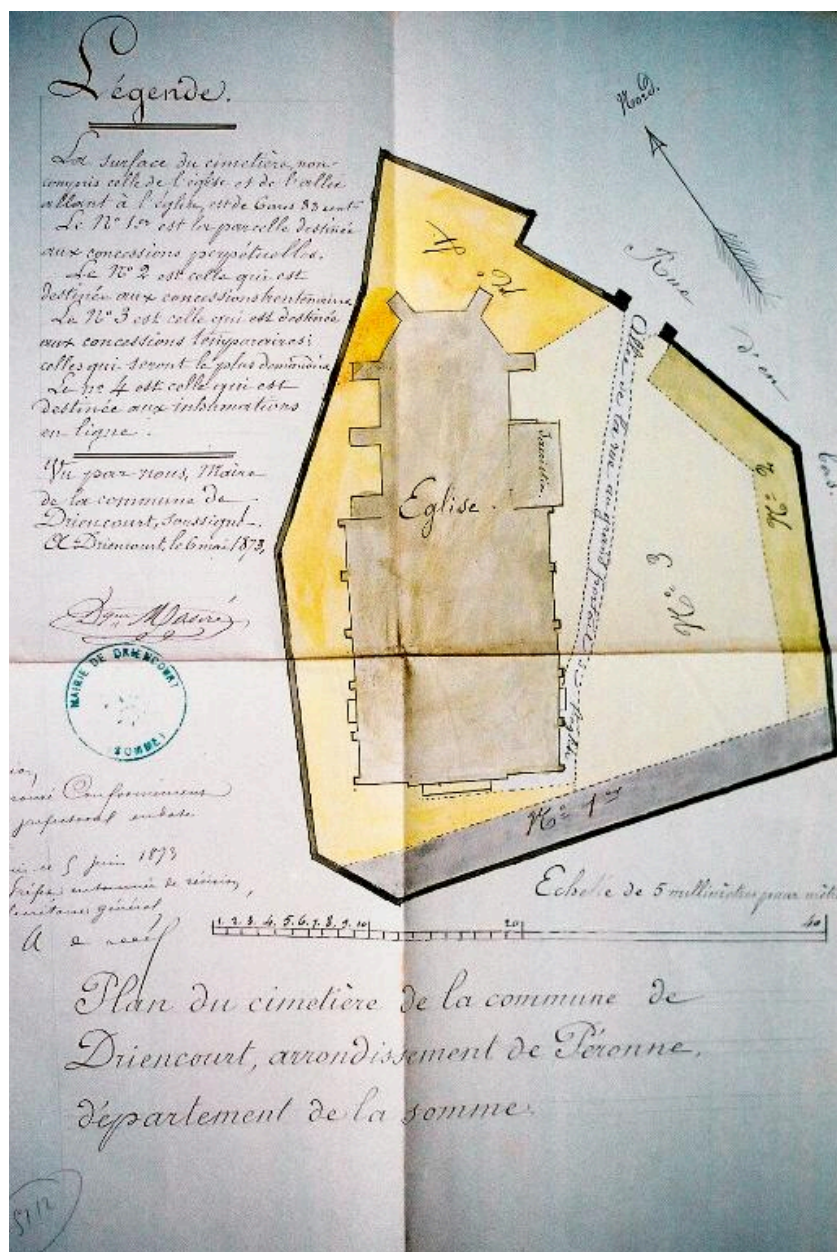 Légende.
La surface du cimetière, non
compris celle de l'église et de l'allée
allant à l'église, est de 6 ares 83 cent
Le Nº 1er est la parcelle destinée
aux concessions perpétuelles.
Le Nº 2 est celle qui est
destinée aux concessions trentenaires
Le Nº 3 est celle qui est destinée
aux concessions temporaires;
celles qui seront le plus demandées
Le nº 4 est celle qui est
destinée aux inhumations
en ligne.
Vu par nous, Maire
de la commune de
Driencourt, soussigné.
A Driencourt, le 6 mai 1873,
MAIRIE DE DRIENCOURT
(SOMME)
Conformément
préfectoral en date
5 juin 1873
général
Nord.
Rue d'en bas
Nº 4
Allée de la rue au grand portail de l'église
Sacristie
Eglise.
Nº 2
Nº 3
Nº 1er
Echelle de 5 millimètres pour mètre
1. 2. 3. 4. 5. 6. 7. 8. 9. 10 20 40
Plan du cimetière de la commune de
Driencourt, arrondissement de Péronne,
département de la somme.